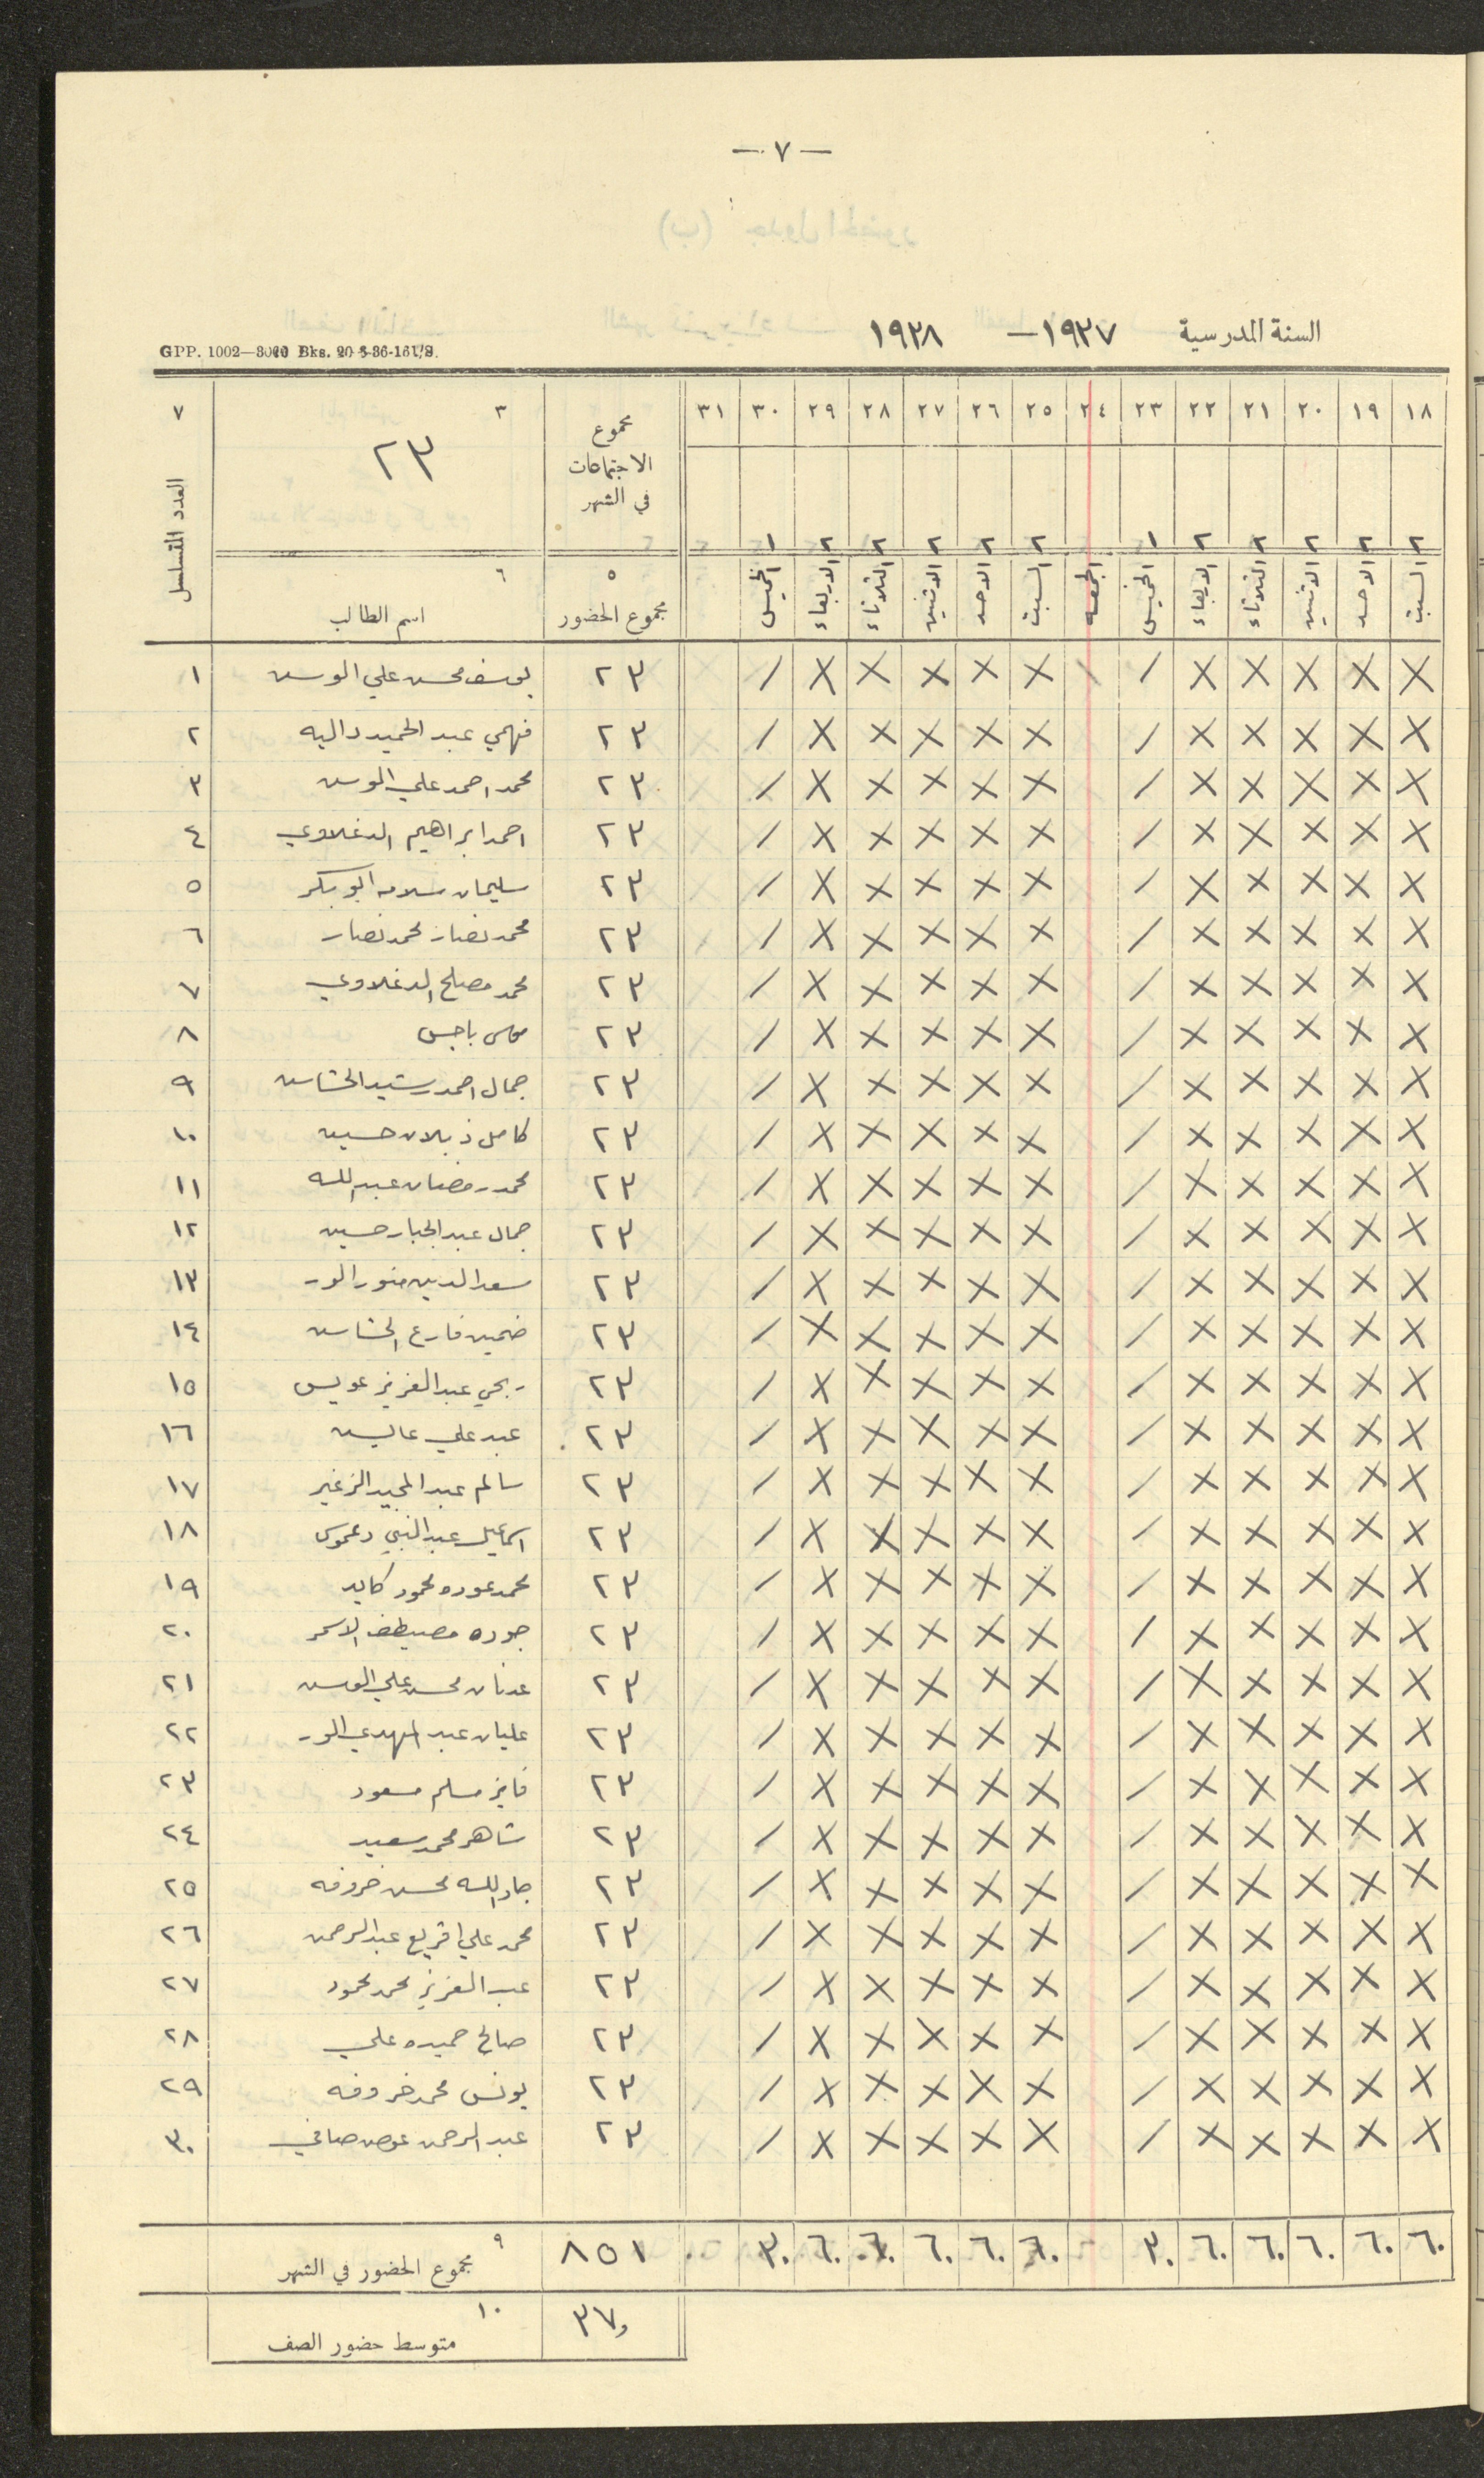 — ٧ —
السنة المدرسية ١٩٣٧ — ١٩٣٨
GPP. 1002
١٨ ١٩ ٢٠ ٢١ ٢٢ ٢٣ ٢٤ ٢٥ ٢٦ ٢٧ ٢٨ ٢٩ ٣٠ ٣١ مجموع الاجتماعات في الشهر ٣ ٢٣ ٧ العدد المتسلسل
٢ ٢ ٢ ٢ ٢ ١ ٢ ٢ ٢ ٢ ٢ ١
السبت الاحد الاثنين الثلاثاء الاربعاء الخميس الجمعه السبت الاحد الاثنين الثلاثاء الاربعاء الخميس ٥ مجموع الحضور ٦ اسم الطالب
X X X X X / X X X X X / ٢٣ يوسف محسن علي الوسن ١
X X X X X / X X X X X / ٢٣ فهمي عبد الحميد داليه ٢
X X X X X / X X X X X / ٢٣ محمد احمد علي الوسن ٣
X X X X X / X X X X X / ٢٣ احمد ابراهيم الدغلاوي ٤
X X X X X / X X X X X / ٢٣ سليمان سلامه ابو بكر ٥
X X X X X / X X X X X / ٢٣ محمد نصار محمد نصار ٦
X X X X X / X X X X X / ٢٣ محمد مصلح الدغلاوي ٧
X X X X X / X X X X X / ٢٣ موسى باجس ٨
X X X X X / X X X X X / ٢٣ جمال احمد رشيد الخشاسن ٩
X X X X X / X X X X X / ٢٣ كامل ذبلان حسين ١٠
X X X X X / X X X X X / ٢٣ محمد رمضان عبد الله ١١
X X X X X / X X X X X / ٢٣ جمال عبد الجبار حسين ١٢
X X X X X / X X X X X / ٢٣ سعد الدين منور الور ١٣
X X X X X / X X X X X / ٢٣ ضمين فارع الخشاسن ١٤
X X X X X / X X X X X / ٢٣ ربحي عبد العزيز عويس ١٥
X X X X X / X X X X X / ٢٣ عبد علي ١٦
X X X X X / X X X X X / ٢٣ سالم عبد المجيد الزغير ١٧
X X X X X / X X X X X / ٢٣ اسماعيل عبد النبي دعموس ١٨
X X X X X / X X X X X / ٢٣ محمد عوده محمود كايد ١٩
X X X X X / X X X X X / ٢٣ جوده مصيطف الاسمر ٢٠
X X X X X / X X X X X / ٢٣ عدنان محسن علي الوسن ٢١
X X X X X / X X X X X / ٢٣ عليان عبد المهدي الور ٢٢
X X X X X / X X X X X / ٢٣ فايز مسلم مسعود ٢٣
X X X X X / X X X X X / ٢٣ شاهر محمد سعيد ٢٤
X X X X X / X X X X X / ٢٣ جاد الله محسن خروفه ٢٥
X X X X X / X X X X X / ٢٣ محمد علي اقريع عبد الرحمن ٢٦
X X X X X / X X X X X / ٢٣ عبد العزيز محمد محمود ٢٧
X X X X X / X X X X X / ٢٣ صالح حميده علي ٢٨
X X X X X / X X X X X / ٢٣ يونس محمد خروفه ٢٩
X X X X X / X X X X X / ٢٣ عبد الرحمن عوض صافي ٣٠
٦٠ ٦٠ ٦٠ ٦٠ ٦٠ ٣٠ ٦٠ ٦٠ ٦٠ ٦٠ ٦٠ ٣٠ ٨٥١ ٩ مجموع الحضور في الشهر
٣٧, ١٠ متوسط حضور الصف